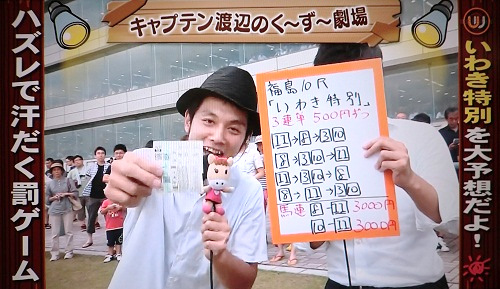 キャプテン渡辺のく~ず~劇場
ハズレで汗だく罰ゲーム
いわき特別を大予想だよ!
福島10R
「いわき特別」
3連単 500円ずつ
11→8→3 10
8→3 10→11
11→3 10→8
8→11→3 10
馬連 8-11 3000円
10-11 3000円